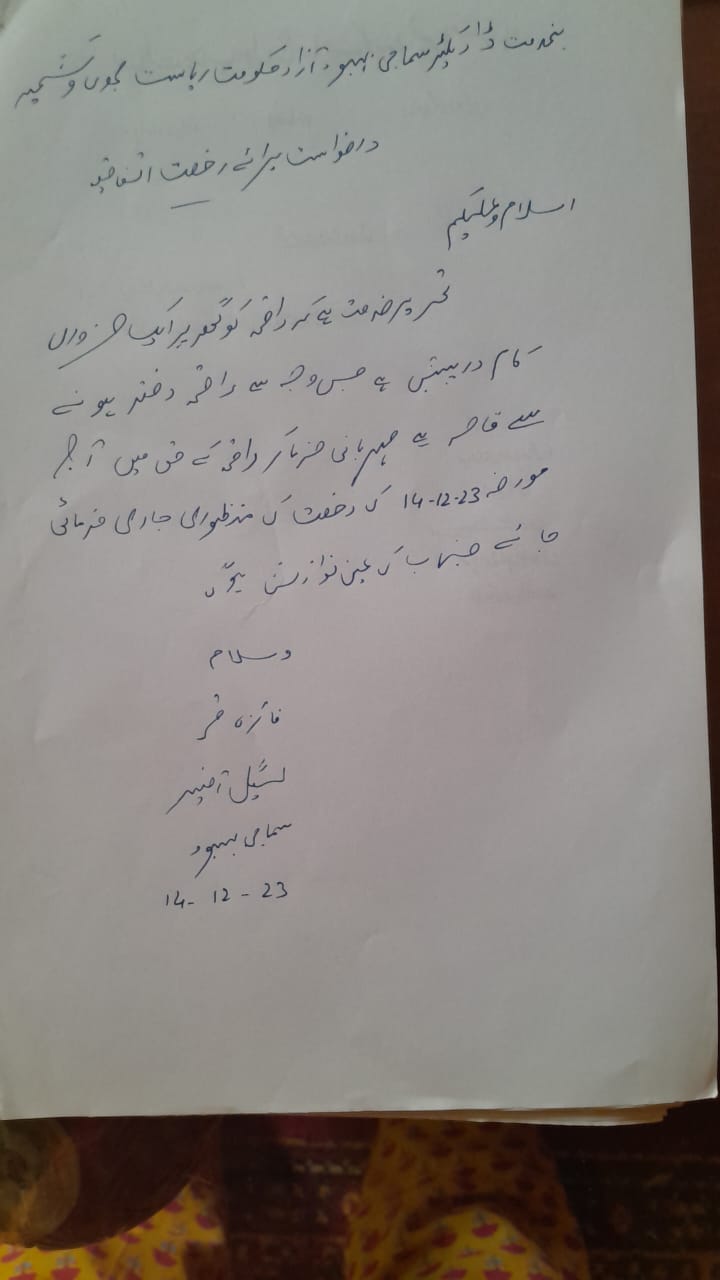 بخدمت ڈائریکٹر سماجی بہبود آزاد حکومت ریاست جموں و کشمیر
درخواست برائے رخصت اتفاقیہ
اسلام و علیکم
تحریر خدمت ہے کہ راقمہ کو گھر پر ایک ضروری
کام درپیش ہے جس وجہ سے راقمہ دفتر ہونے
سے قاصر ہے مہربانی فرما کر راقمہ کے حق میں آج
مورخہ 14-12-23 کی رخصت کی منظوری جاری فرمائی
جائے جناب کی عین نوازش ہو گی
وسلام
فائزہ
آفیسر
سماجی بہبود
14-12-23